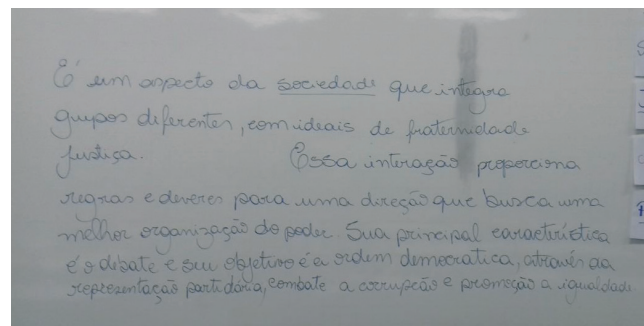 É um aspecto da sociedade que integra
grupos diferentes, com ideais de fraternidade
justiça. Essa interação proporciona
regras e deveres para uma direção que busca uma
melhor organização do poder. Sua principal característica
é o debate e seu objetivo é a ordem democratica, através da
representação partidária, combate a corrupção e promoção a igualdade